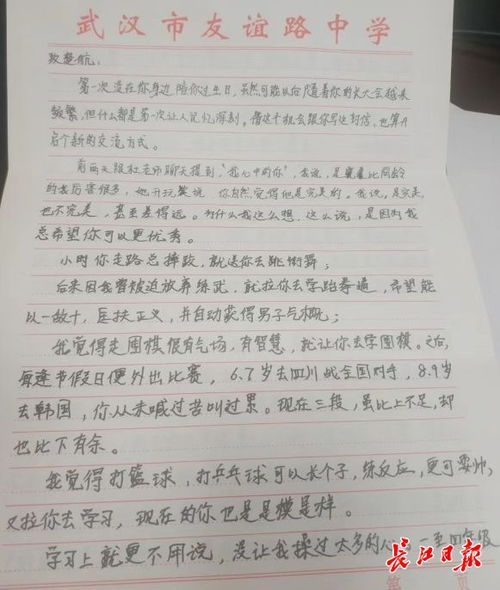 武汉市友谊路中学
致楚航:
第一次没在你身边陪你过生日,虽然可能以后随着你的长大会越来
频繁,但什么都是第一次让人记忆深刻。借这个机会跟你写这封信,也算开
启个新的交流方式。
前两天跟杜老师聊天提到“我心中的你”,我说,是比同龄
的我厉害很多,她开玩笑说 你自然觉得他是完美的。我说,是完美,
也不完美,甚至差得远。为什么我这么想、这么说,是因为我
总希望你可以更优秀。
小时你走路总摔跤,就送你去跳街舞;
后来因我曾被迫放弃练武,就拉你去学跆拳道,希望能
以一敌十,匡扶正义,并自动获得男子气概;
我觉得走围棋很有气场,有智慧,就让你去学围棋。之后,
每逢节假日便外出比赛,6.7岁去四川战全国对手,8.9岁
去韩国,你从未喊过苦叫过累。现在三段,虽比上不足,却
也比下有余。
我觉得打篮球,打乒乓球可以长个子,练反应,更可耍帅,
又拉你去学习,现在的你也是是模是样。
学习上就更不用说,没让我操过太多的心。一至四年级
长江日报
第 页